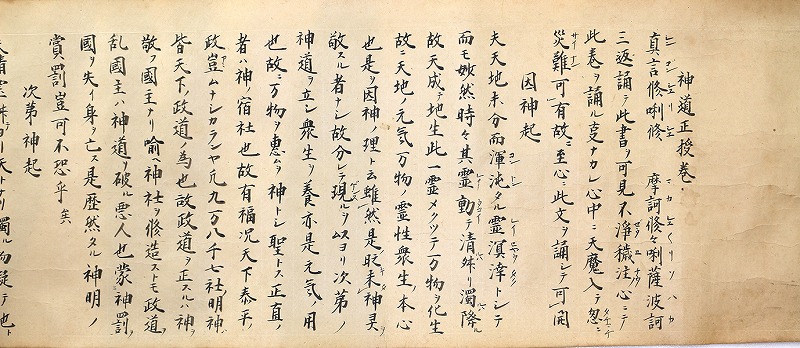 神道正授巻
真言修唎修 摩訶修々唎薩波訶
三返誦テ此書ヲ可見不淨穢泩心ニテ
此巻ヲ誦ル夏ナカレ心中ニ天魔入テ忽ニ
災難可有故ニ至心ニ此文ヲ誦シテ可開
因神起
夫天地未分而渾沌タル霊溟涬トシテ
而モ妙然時々其霊動テ清舛リ濁降ル
故天成テ地生此一霊メクツテ万物ヲ化生
故ニ天地ノ元氣万物ノ霊性衆生ノ本心
也是ヲ因神ノ理ト云雖然是眨未神㚑
敬スル者ナシ故分レテ現ルヲムスヨリ次第ノ
神道ヲ立シ衆生ヲ養亦是元氣ノ用
也故ニ万物ヲ惠ムヲ神トシ聖トス正直ノ
者ハ神ノ宿社也故有福况天下泰平ノ
政豈ムナシカランヤ凢九万八千七社明神
皆天下ノ政道ノ為也故政道ヲ正スルハ神ヲ
敬フ國主ナリ喩ヘ神社ヲ修造ストモ政道
乱國主ハ神道ヲ破ル悪人也蒙神罰
國ヲ失イ身ヲ亡ス是歴然タル神明ノ
賞罰豈可不恐乎矣
次第神起
天ナリ濁ル物凝テ也ト